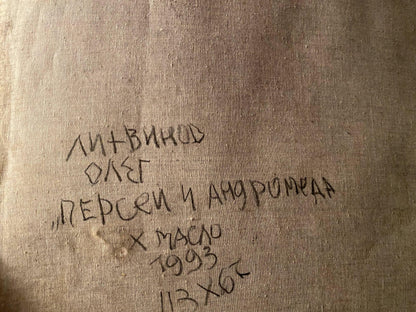 ЛИТВИНОВ
ОЛЕГ
„ПЕРСЕЙ И АНДРОМЕДА
Х МАСЛО
1993